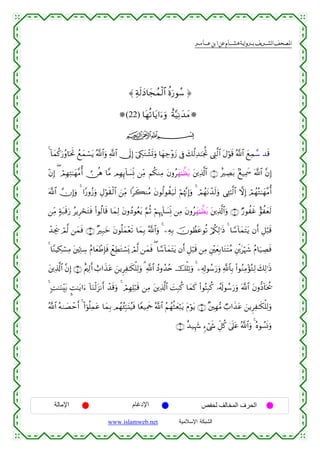 المصحف الشريف برواية هشام عن ابن عامر
﴿ سُورَةُ ٱلْمُجَادَلَةِ ﴾
* مَدَنِيَّةٌ وَءَايَاتُهَا (22) *
بِسْمِ ٱللَّهِ ٱلرَّحْمَٰنِ ٱلرَّحِيمِ
قَد سَّمِعَ ٱللَّهُ قَوْلَ ٱلَّتِي تُجَٰدِلُكَ فِي زَوْجِهَا وَتَشْتَكِيٓ إِلَى ٱللَّهِ وَٱللَّهُ يَسْمَعُ تَحَاوُرَكُمَآ ۚ
إِنَّ ٱللَّهَ سَمِيعٌۢ بَصِيرٌ ۝١ ٱلَّذِينَ يَظَّٰهَرُونَ مِنكُم مِّن نِّسَآئِهِم مَّا هُنَّ أُمَّهَٰتِهِمْ ۖ إِنْ
أُمَّهَٰتُهُمْ إِلَّا ٱلَّٰٓـِٔي وَلَدْنَهُمْ ۚ وَإِنَّهُمْ لَيَقُولُونَ مُنكَرًا مِّنَ ٱلْقَوْلِ وَزُورًا ۚ وَإِنَّ ٱللَّهَ
لَعَفُوٌّ غَفُورٌ ۝٢ وَٱلَّذِينَ يَظَّٰهَرُونَ مِن نِّسَآئِهِمْ ثُمَّ يَعُودُونَ لِمَا قَالُوا۟ فَتَحْرِيرُ رَقَبَةٍ مِّن
قَبْلِ أَن يَتَمَآسَّا ۚ ذَٰلِكُمْ تُوعَظُونَ بِهِۦ ۚ وَٱللَّهُ بِمَا تَعْمَلُونَ خَبِيرٌ ۝٣ فَمَن لَّمْ يَجِدْ
فَصِيَامُ شَهْرَيْنِ مُتَتَابِعَيْنِ مِن قَبْلِ أَن يَتَمَآسَّا ۖ فَمَن لَّمْ يَسْتَطِعْ فَإِطْعَامُ سِتِّينَ مِسْكِينًا ۚ
ذَٰلِكَ لِتُؤْمِنُوا۟ بِٱللَّهِ وَرَسُولِهِۦ ۚ وَتِلْكَ حُدُودُ ٱللَّهِ ۗ وَلِلْكَٰفِرِينَ عَذَابٌ أَلِيمٌ ۝٤ إِنَّ ٱلَّذِينَ
يُحَآدُّونَ ٱللَّهَ وَرَسُولَهُۥ كُبِتُوا۟ كَمَا كُبِتَ ٱلَّذِينَ مِن قَبْلِهِمْ ۚ وَقَدْ أَنزَلْنَآ ءَايَٰتٍۭ بَيِّنَٰتٍ ۚ
وَلِلْكَٰفِرِينَ عَذَابٌ مُّهِينٌ ۝٥ يَوْمَ يَبْعَثُهُمُ ٱللَّهُ جَمِيعًا فَيُنَبِّئُهُم بِمَا عَمِلُوٓا۟ ۚ أَحْصَىٰهُ ٱللَّهُ
وَنَسُوهُ ۚ وَٱللَّهُ عَلَىٰ كُلِّ شَيْءٍ شَهِيدٌ ۝٦
الحرف المخالف لحفص الإدغام الإمالة
الشبكة الإسلامية www.islamweb.net